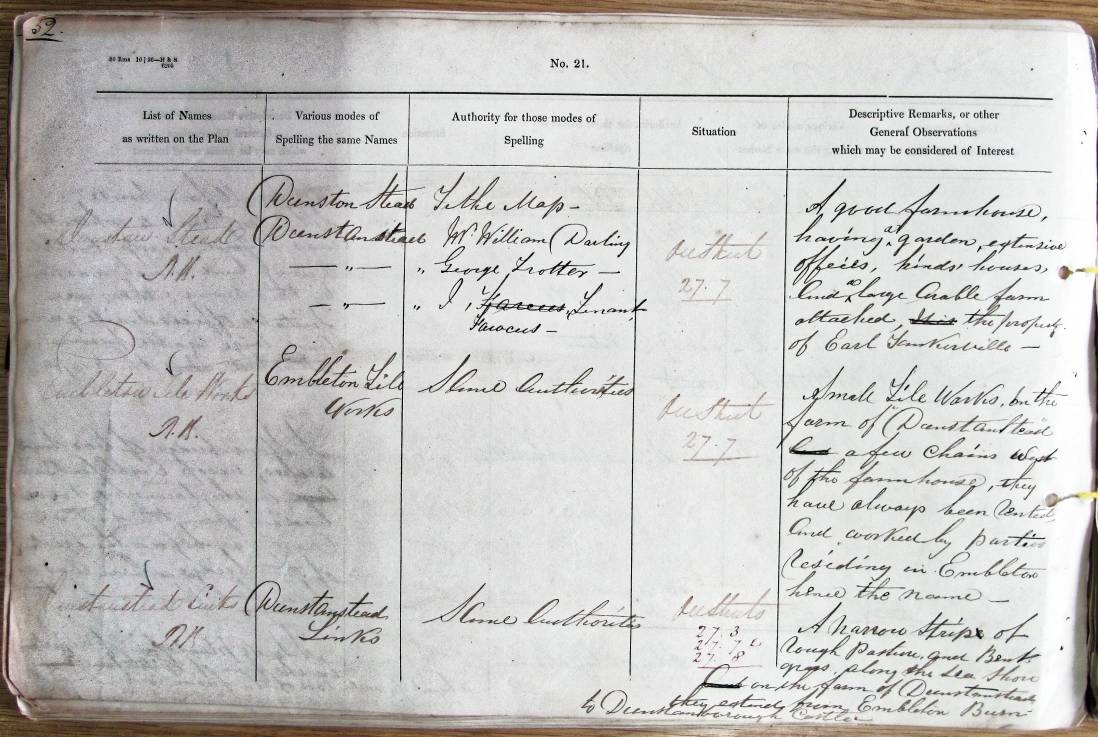 52.
No. 21.
List of Names
as written on the Plan
Various modes of
Spelling the same Names
Authority for those modes of
Spelling
Situation
Descriptive Remarks, or other
General Observations
which may be considered of Interest
Dunstan Stead
R.H.
Dunston Stead
Dunstanstead
— " —
— " —
Tithe Map —
Mr. William Darling
" George Trotter —
" J, Farcus, Tenant
Fawcus —
On Sheet
27.7
A good farmhouse,
having a garden, extensive
offices, hinds' houses,
And a large Arable farm
attached, this the property
of Earl Tankerville —
Embleton Tile Works
R.H.
Embleton Tile
Works
Same Authorities
On Sheet
27.7
Small Tile Works, on the
farm of "Dunstanstead"
And a few chains West
of the farmhouse, they
have always been rented,
And worked by parties
residing in Embleton
hence the name —
Dunstanstead Links
R.H.
Dunstanstead
Links
Same Authorities
On Sheets
27.3
27.7
27.8
A narrow Strip of
rough Pasture, and Bent
grass, along the sea Shore
on the farm of Dunstanstead
they extend from Embleton Burn
to Dunstanborough Castle